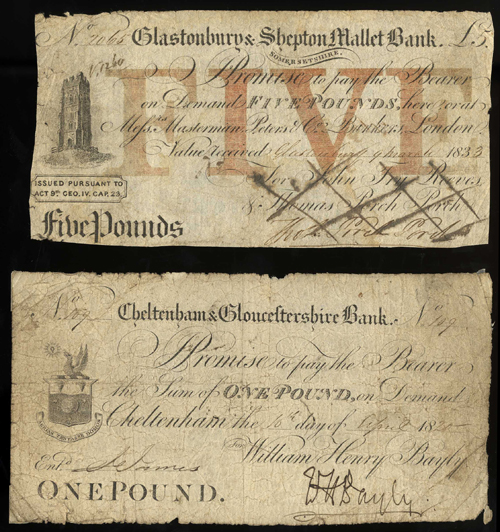 No. 7065 Glastonbury & Shepton Mallet Bank. £5.
SOMERSETSHIRE.
FIVE
I Promise to pay the Bearer
on Demand FIVE POUNDS, here or at
Messrs. Masterman Peters & Co. Bankers, London.
Value received Glastonbury 1833
ISSUED PURSUANT TO
ACT 9th GEO. IV. CAP. 23.
For John Fry Reeves
& Thomas Porch Porch
Five Pounds
No. 109 Cheltenham & Gloucestershire Bank. No. 109
I Promise to pay the Bearer
the Sum of ONE POUND, on Demand
Cheltenham the day of April 18
For William Henry Bayly
Entd. S James
ONE POUND.
WHBayly